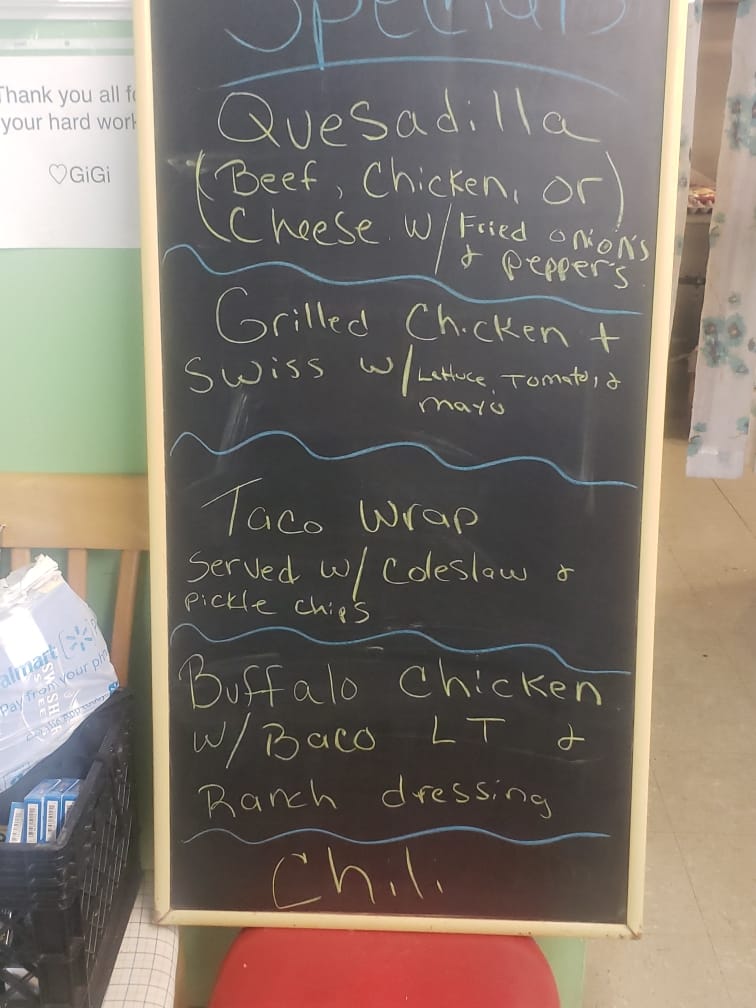 Specials
Thank you all fo
your hard work
♡GiGi
Quesadilla
(Beef, Chicken, or)
Cheese w/ Fried onion's
& pepper's
Grilled Chicken +
Swiss w/ Lettuce, Tomato, &
mayo
Taco Wrap
Served w/ Coleslaw &
pickle chips
Buffalo Chicken
w/ Baco LT &
Ranch dressing
Chili
almart
Pay from your ph